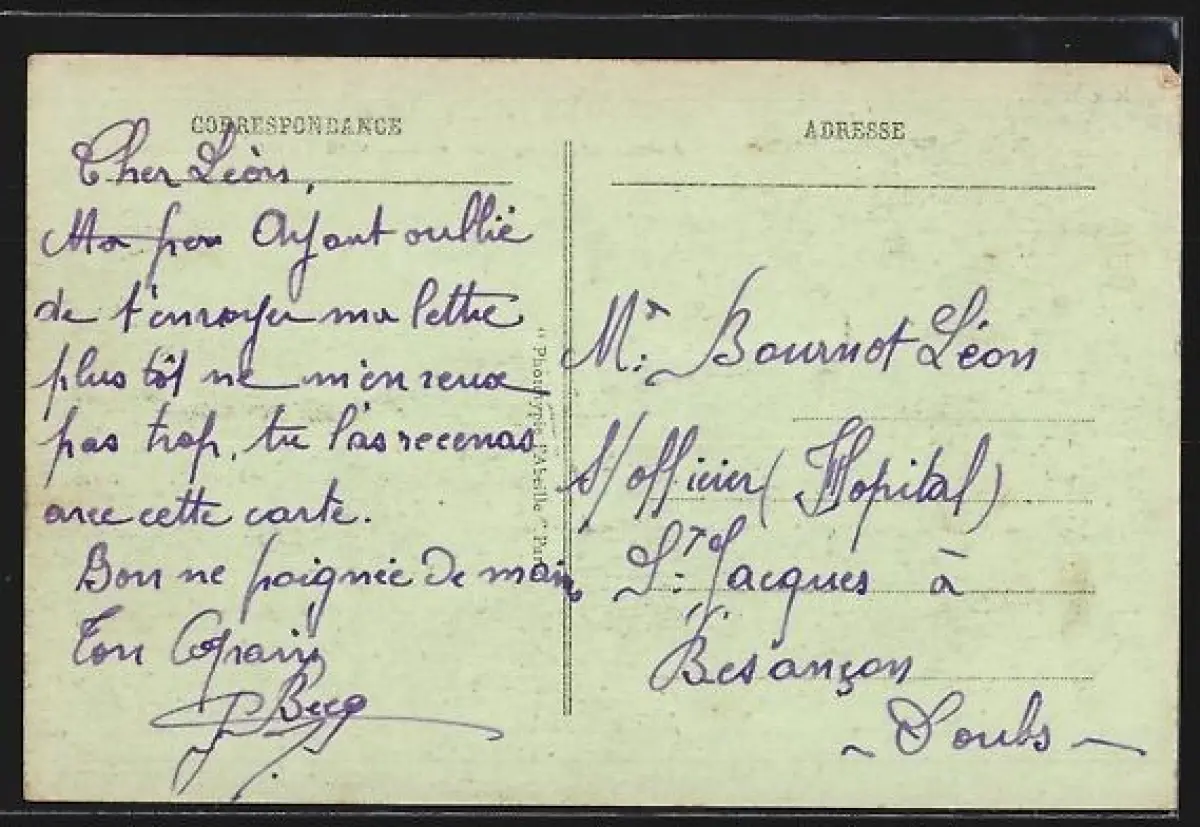 CORRESPONDANCE
Cher Léon,
Ayant oublié
de t'envoyer ma lettre
plus tôt ne m'en veux
pas trop, tu l'as recevras
avec cette carte.
Bon ne poignée de main
Ton Copain
ADRESSE
Mr: Bournot Léon
S/officier (Hopital)
St: Jacques à
Besançon
~ Doubs ~
"Phototypie l'Abeille" Paris